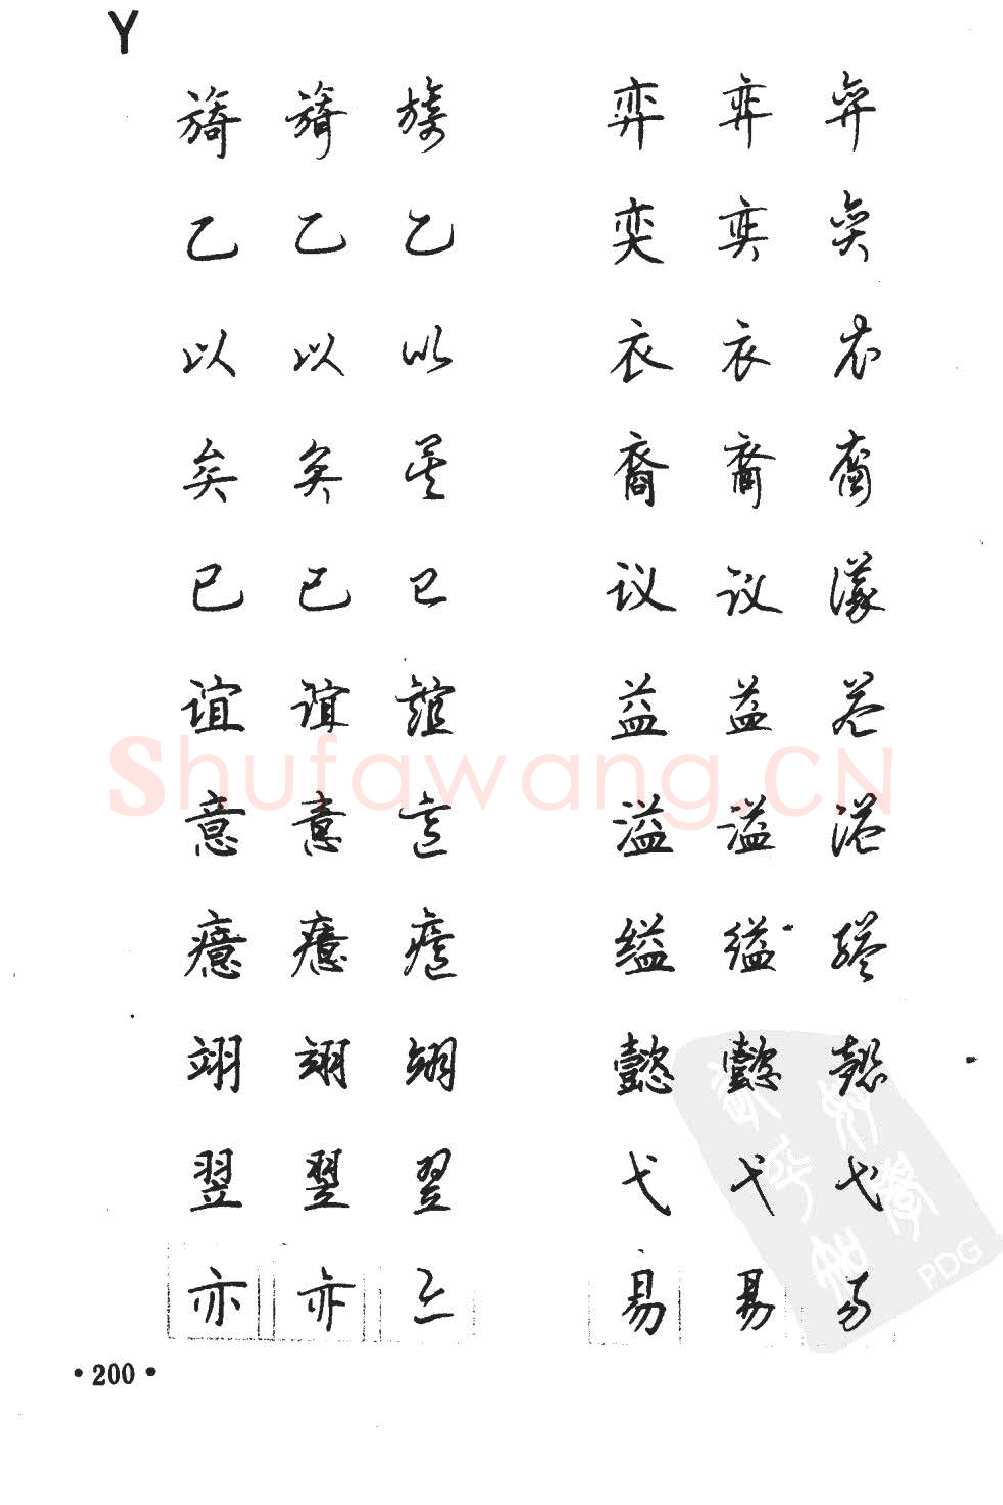 Y
旖 旖 旖 弈 弈 弈
乙 乙 乙 奕 奕 奕
以 以 以 衣 衣 衣
矣 矣 矣 裔 裔 裔
已 已 已 议 议 議
谊 谊 誼 益 益 益
Shufawang.CN
意 意 意 溢 溢 溢
癔 癔 癔 缢 缢 縊
翊 翊 翊 懿 懿 懿
翌 翌 翌 弋 弋 弋
亦 亦 亦 易 易 易
PDG
·200·